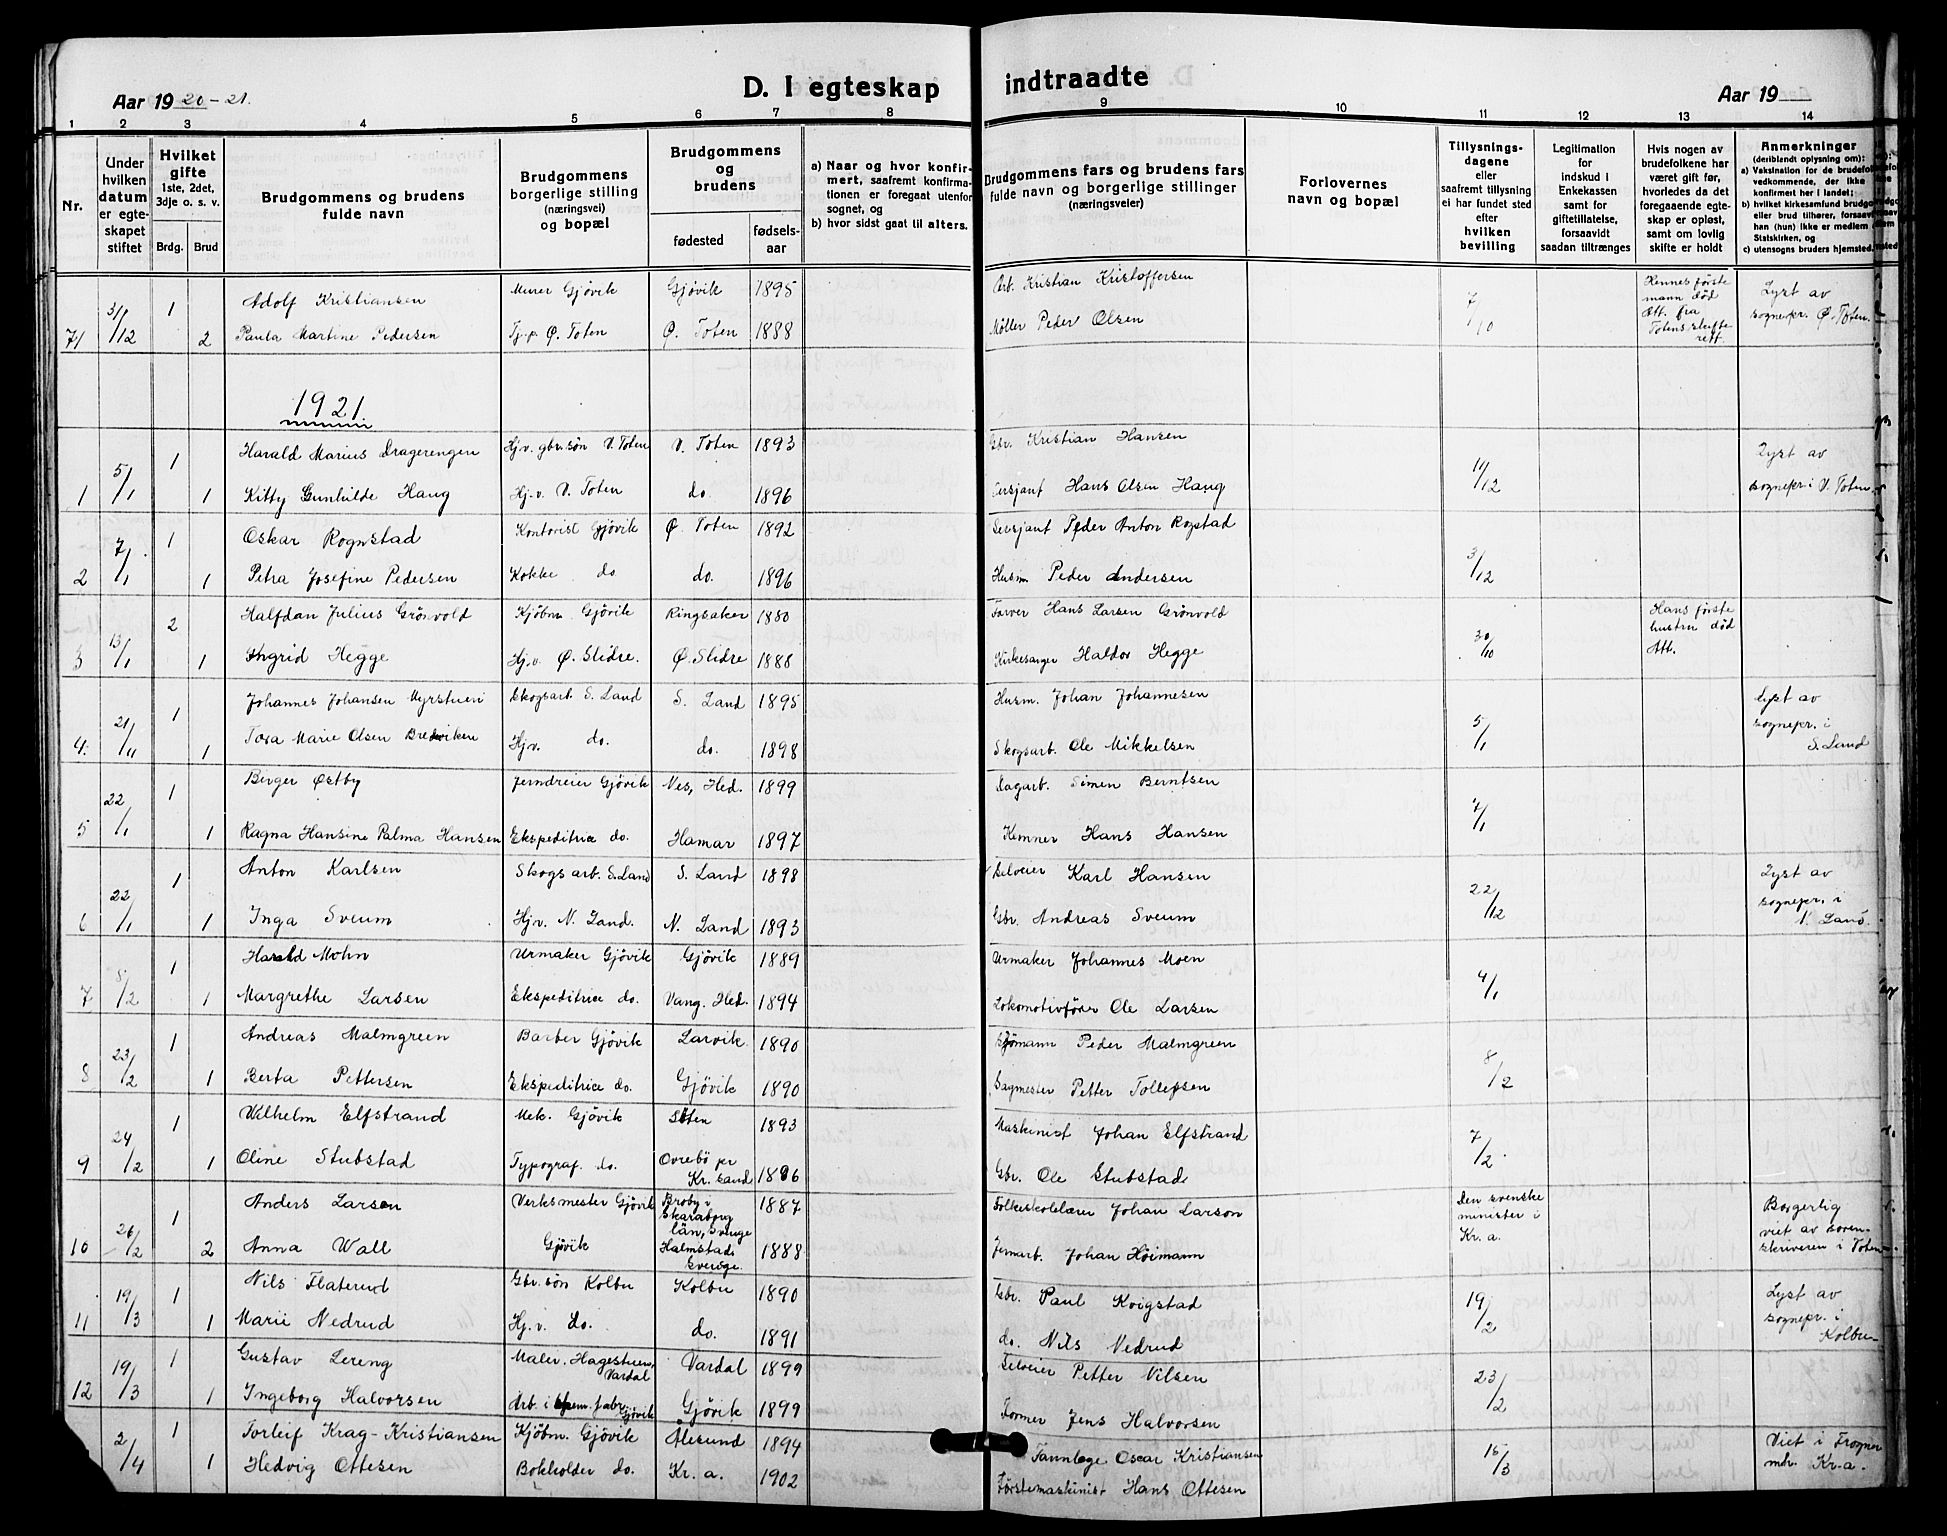 Aar 1920-21.
D. I egteskap indtraadte
Aar 19
1 2 3 4 5 6 7 8 9 10 11 12 13 14
Nr.
Under hvilken datum er egteskapet stiftet
Hvilket gifte 1ste, 2det, 3dje o. s. v.
Brdg. Brud
Brudgommens og brudens fulde navn
Brudgommens borgerlige stilling (næringsvei) og bopæl
Brudgommens og brudens
fødested
fødselsaar
a) Naar og hvor konfirmert, saafremt konfirmationen er foregaat utenfor sognet, og
b) hvor sidst gaat til alters.
Brudgommens fars og brudens fars fulde navn og borgerlige stillinger (næringsveier)
Forlovernes navn og bopæl
Tillysningsdagene eller saafremt tillysning ei har fundet sted efter hvilken bevilling
Legitimation for indskud i Enkekassen samt for giftetillatelse, forsaavidt saadan tiltrænges
Hvis nogen av brudefolkene har været gift før, hvorledes da det foregaaende egteskap er opløst, samt om lovlig skifte er holdt
Anmerkninger (deriblandt oplysning om):
a) Vaksination for de brudefolk vedkommende, der ikke konfirmert her i landet;
b) hvilket kirkesamfund brudgom eller brud tilhører, forsaavidt han (hun) ikke er medlem Statskirken, og
c) utensogns bruders hjemsted.
31/12 1 Adolf Kristiansen Murer Gjövik Gjövik 1895 Arb. Kristian Kristoffersen 7/10 Hennes förste mann död Att. fra Totens skifterett. Lyst av sognepr. Ø. Toten.
71 2 Paula Martine Pedersen Tj.p. Ø. Toten Ø. Toten 1888 Møller Peder Olsen
1921
5/1 1 Harald Marius Dragerengen Hj.v. gbr.søn V. Toten V. Toten 1893 Gbr. Kristian Hansen 11/12 Lyst av sognepr i V. Toten.
1 1 Kitty Gunhilde Haug Hj.v. V. Toten do. 1896 Sersjant Hans Olsen Haug
7/1 1 Oskar Rognstad Kontorist Gjövik Ø. Toten 1892 Sersjant Peder Anton Rogstad 3/12
2 1 Petra Josefine Pedersen Kokke do do. 1896 Husm. Peder Andersen
13/1 2 Halfdan Julius Grönvold Kjöbm. Gjövik Ringsaker 1880 Farver Hans Larsen Grönvold 30/10 Hans förste hustru död Att.
3 1 Ingrid Hegge Hj.v. Ø. Slidre. Ø. Slidre 1888 Kirkesanger Haldor Hegge
21/11 1 Johannes Johansen Myrstuen Skogsarb. S. Land S. Land 1895 Husm. Johan Johannesen 5/1 Lyst av sognepr. i S. Land
4. 1 Tora Marie Olsen Bredviken Hj.v. do. do. 1898 Skogsarb. Ole Mikkelsen
22/1 1 Berger Østby Jerndreier Gjövik Nes, Hed. 1899 Dagarb. Simen Berntsen 4/1
5 1 Ragna Hansine Palma Hansen Ekspeditrice do. Hamar 1897 Kemner Hans Hansen
22/1 1 Anton Karlsen Skogsarb. S. Land S. Land 1898 Selveier Karl Hansen 22/12 Lyst av sognepr. i N. Land.
6 1 Inga Sveum Hj.v. N. Land. N. Land 1893 Gbr. Andreas Sveum
8/2 1 Harald Mohn Urmaker Gjövik Gjövik 1889 Urmaker Johannes Moen 4/1
7 1 Margrethe Larsen Ekspeditrice do. Vang. Hed. 1894 Lokomotivförer Ole Larsen
23/2 1 Andreas Malmgreen Barber Gjövik Larvik. 1890 Sjömann Peder Malmgreen 8/2
8 1 Berta Pettersen Ekspeditrice do. Gjövik 1890 Sagmester Petter Tollefsen
24/2 1 Wilhelm Elfstrand Mek. Gjövik 1893 Maskinist Johan Elfstrand 7/2.
9 1 Oline Stubstad Typograf. do. Ovrebö pr Kr. sand Gbr. Ole Stubstad
26/2 1 Anders Larsen Verksmester Gjövik Broby i Skaraborg län, Sverige 1887 Folkeskolelærer Johan Larson Den svenske minister i Kr. a. Borgerlig viet av sorenskriveren i Toten
10 2 Anna Wall Gjövik Halmstad Sverige. 1888 Jernarb. Johan Höimann
19/3 1 Nils Flaterud Gbr. søn Kolbu Kolbu 1890 Gbr. Paul Kvigstad 19/2 Lyst av sognepr. i Kolbu
11 1 Marie Nedrud Hj.v. do. do. 1891 do. Nils Nedrud
19/3 1 Gustav Lereng Maler. Hagestuen, Vardal Vardal 1899 Selveier Petter Nilsen 23/2
12 1 Ingeborg Halvorsen Arb. i fabr. Gjövik Gjövik 1899 Former Jens Halvorsen
2/4 1 Torleif Krag-Kristiansen Kjöbm. Gjövik Ålesund 1894 Tannlæge Oscar Kristiansen 15/3 Viet i Frogner mh. Kr.a.
1 Hedvig Ottesen Bokholder do. Kr. a. 1902 Förstemaskinist Hans Ottesen